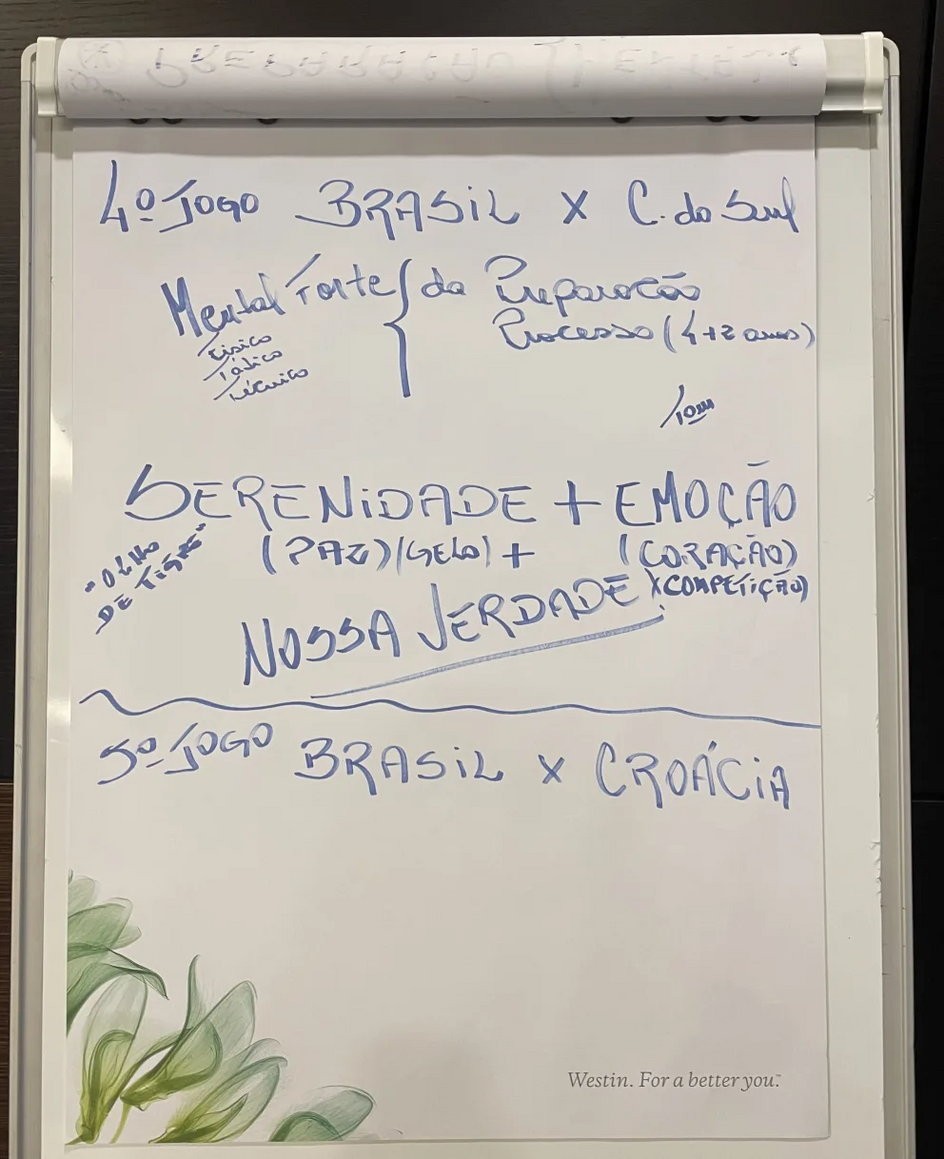 4º JOGO BRASIL X C. do Sul
Mental Forte { da Preparação
Físico
Tático
Técnico
Processo (4+2 anos)
SERENIDADE + EMOÇÃO
(PAZ) (GELO) + (CORAÇÃO)
"OLHO
DE TIGRE"
(COMPETIÇÃO)
NOSSA VERDADE
5º JOGO BRASIL X CROÁCIA
Westin. For a better you.™